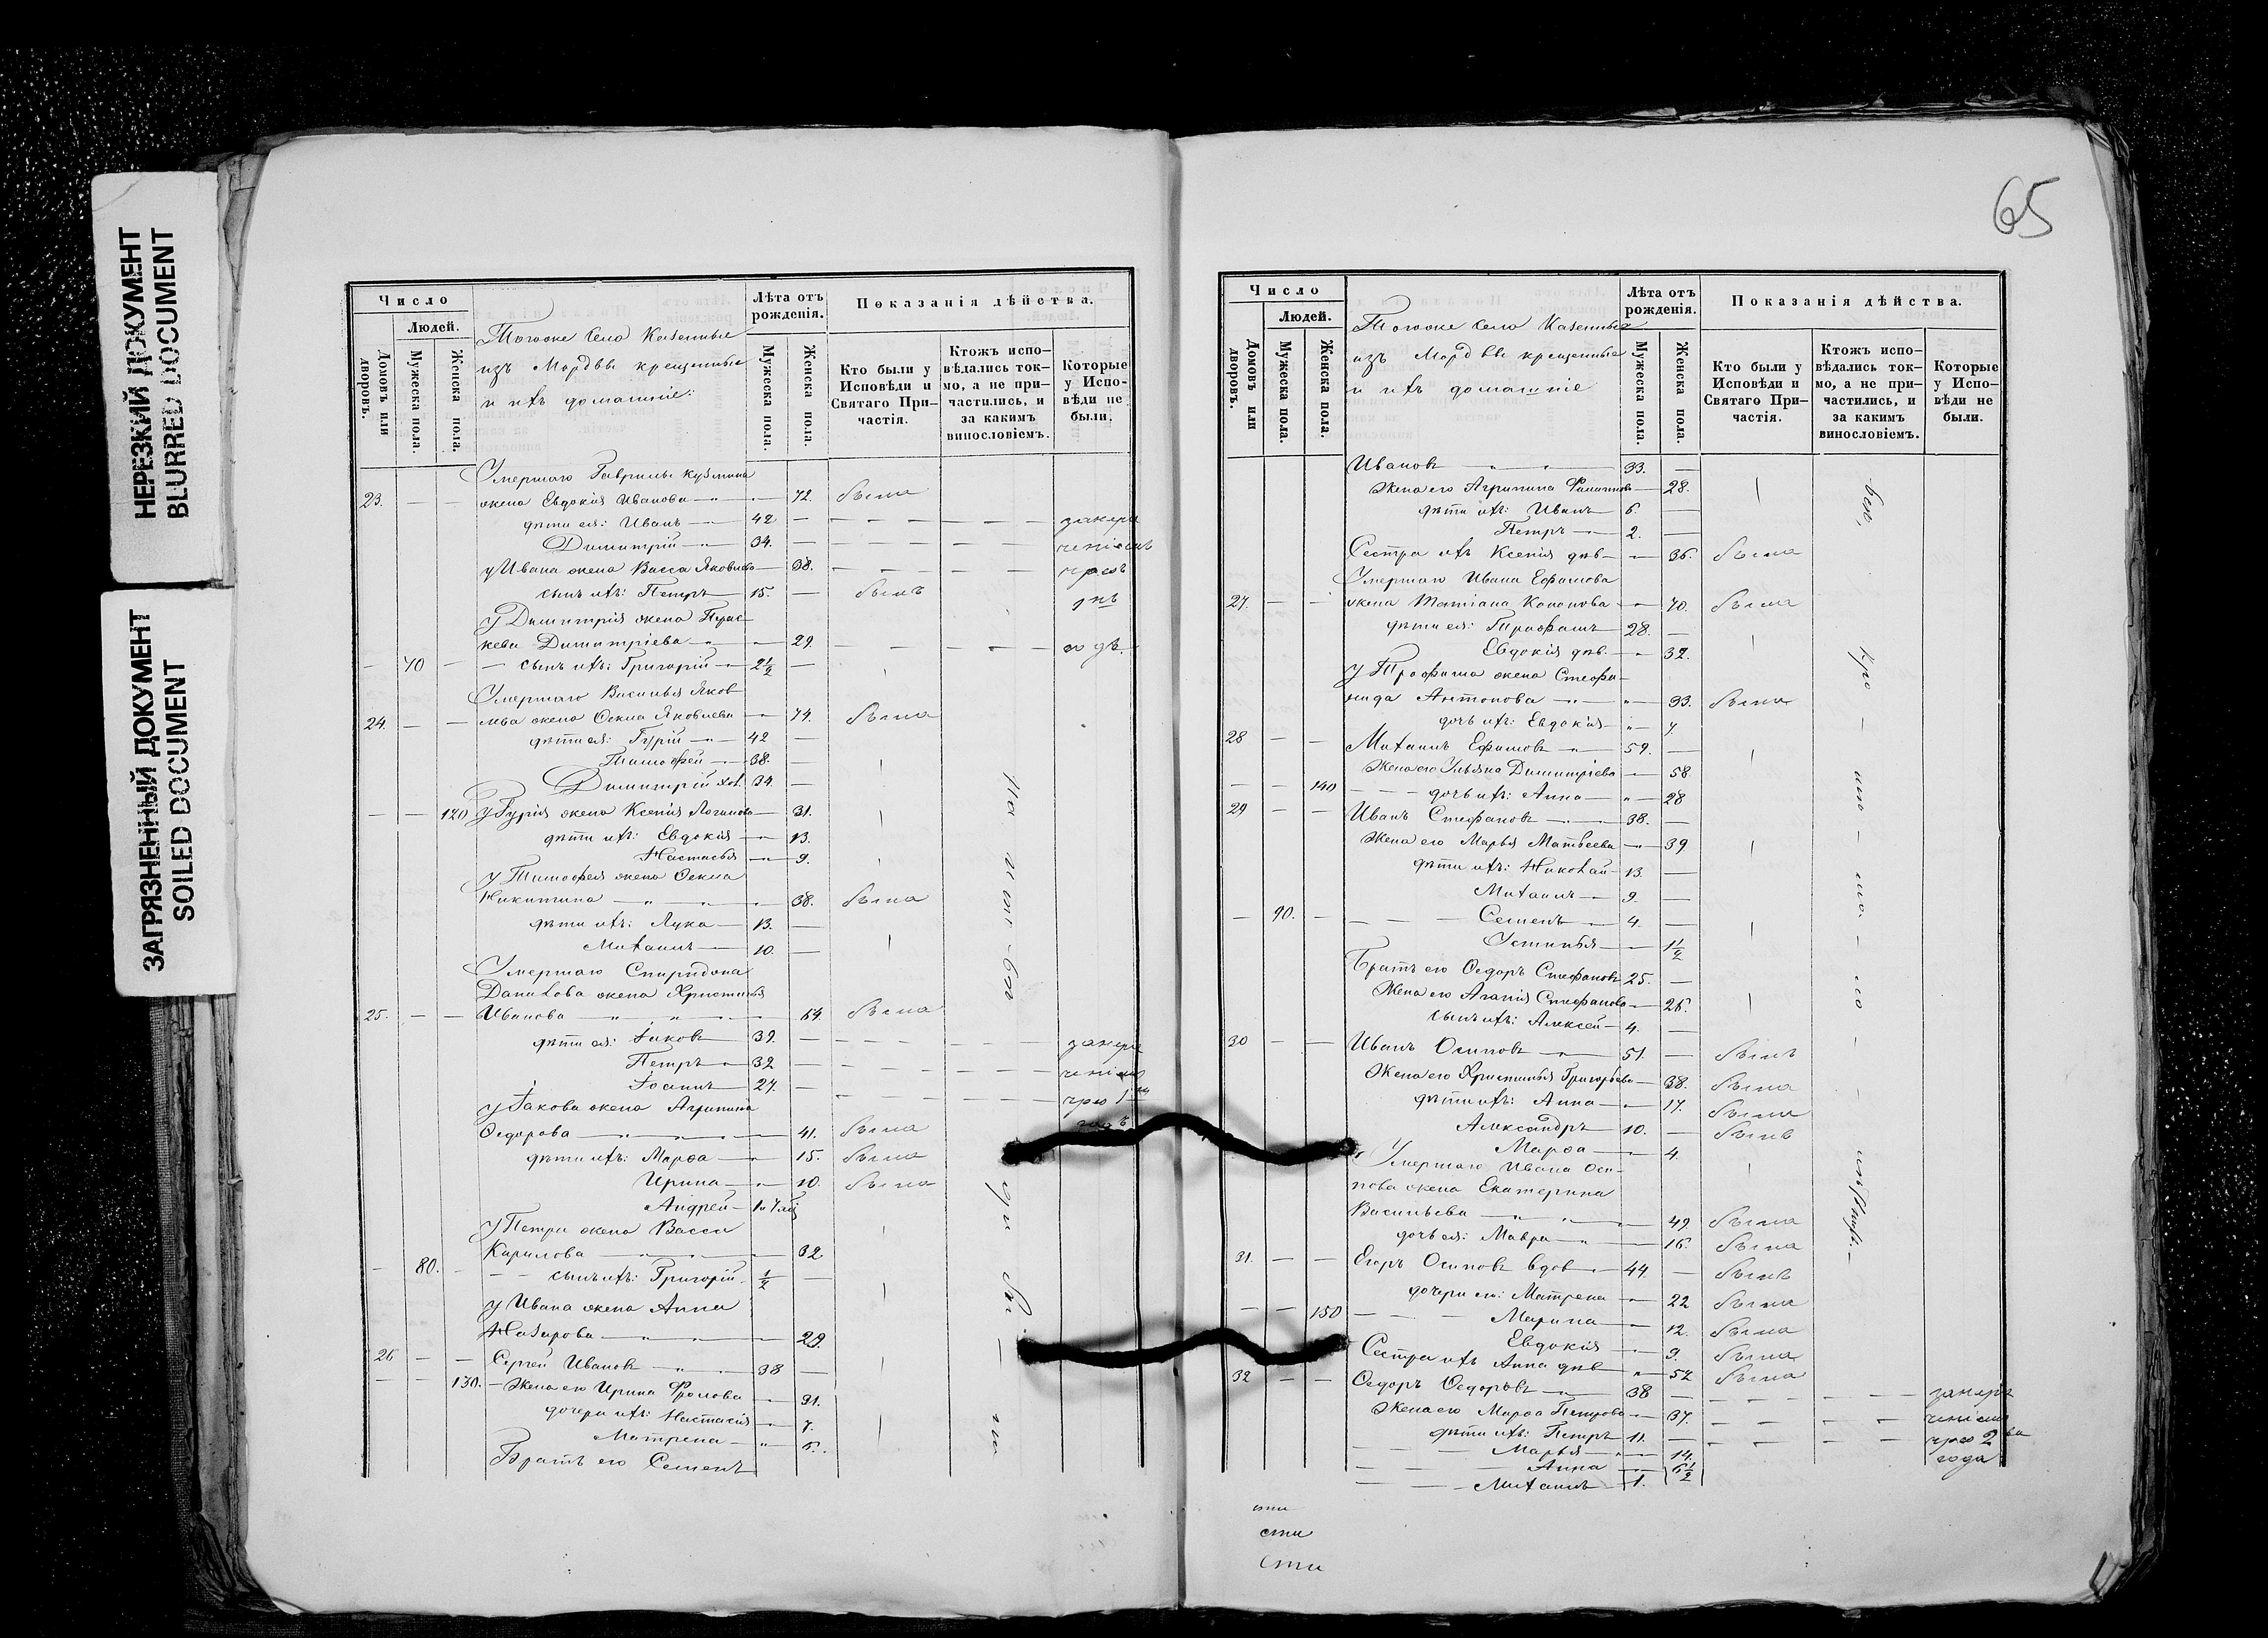 НЕРЕЗКИЙ ДОКУМЕНТ
BLURRED DOCUMENT
ЗАГРЯЗНЕННЫЙ ДОКУМЕНТ
SOILED DOCUMENT
Число
Людей.
Домовъ или дворовъ.
Мужеска пола.
Женска пола.
Тогоже села Казенные
изъ Мордвы крещенные
и ихъ домашніе:
Лѣта отъ рожденія.
Мужеска пола.
Женска пола.
Показанія дѣйства.
Кто были у Исповѣди и Святаго Причастія.
Ктожъ исповѣдались токмо, а не причастились, и за какимъ винословіемъ.
Которые у Исповѣди не были.
Умершаго Гаврилы Кузмина
23. — — жена Евдокія Иванова — 72. была
дѣти ея: Иванъ — 42 —
Димитрій — 34. —
у Ивана жена Васса Яковлева — 38.
сынъ ихъ: Петръ — 15. — былъ
у Димитрія жена Парас-
кева Димитріева — 29.
— 70 — сынъ ихъ: Григорій — 2½ —
Умершаго Василья Яков-
24. — — лева жена Ѳекла Яковлева — 74. была
дѣти ея: Гурій — 42 —
Тимоѳей — 38. —
Димитрій хол. 34. —
— — 120 у Гурія жена Ксенія Логинова — 31.
дѣти ихъ: Евдокія — 13.
Настасья — 9.
у Тимоѳея жена Ѳекла
Никитина — 38. была
дѣти ихъ: Лука — 13. —
Михаилъ — 10. —
Умершаго Спиридона
Данилова жена Христинья
25. — — Иванова — 64. была
дѣти ея: Іаковъ 39. —
Петръ — 32 —
Іоаннъ — 27. —
у Іакова жена Агрипина
Ѳедорова — 41. была
дѣти ихъ: Марѳа — 15. была
Ирина — 10. была
Андрей —
у Петра жена Васса
Карпова — 32
— 80. — сынъ ихъ: Григорій. ½ —
у Ивана жена Анна
Назарова — 29.
26 — — Сергей Ивановъ — 38 —
— — 130. — Жена его Ирина Фролова — 31.
дочери ихъ: Настасія — 7.
Матрена — 5.
Братъ его Семенъ
65
Число
Людей.
Домовъ или дворовъ.
Мужеска пола.
Женска пола.
Тогоже села Казенные
изъ Мордвы крещенные
и ихъ домашніе
Лѣта отъ рожденія.
Мужеска пола.
Женска пола.
Показанія дѣйства.
Кто были у Исповѣди и Святаго Причастія.
Ктожъ исповѣдались токмо, а не причастились, и за какимъ винословіемъ.
Которые у Исповѣди не были.
Ивановъ — 33. —
Жена его Агрипина — 28.
дѣти ихъ: Иванъ 6. —
Петръ — 2. —
Сестра ихъ Ксенія дѣв. — 36. была
Умершаго Ивана Ефимова
27. — — жена Татіана Кононова — 70. была
дѣти ея: Трофимъ — 28. —
Евдокія дѣв. — 32.
у Трофима жена Стефа-
нида Антонова — 33. была
дочь ихъ: Евдокія — 7.
28 — — Михаилъ Ефимовъ — 59. —
Жена его Ульяна Димитріева — 58
— — 140 — дочь ихъ: Анна — 28
29 — — Иванъ Стефановъ — 38. —
Жена его Марья Матвеева — 39
дѣти ихъ: Николай — 13. —
Михаилъ — 9. —
— 90. — Семенъ — 4. —
Устинья — 1½
Братъ его Ѳедоръ Стефановъ 25. —
Жена его Агапія Стефанова — 26.
сынъ ихъ: Алексей — 4. —
30 — — Иванъ Осиповъ — 51. — былъ
Жена его Христинья Григорьева — 38. была
дѣти ихъ: Анна — 17. была
Александръ — 10. — былъ
Марѳа — 4.
Умершаго Ивана Оси-
пова жена Екатерина
Васильева — 49. была
дочь ея: Мавра — 16. была
31. — — Егоръ Осиповъ вдов. — 44. — былъ
дочери его: Матрена — 22 была
— — 150 — Марина — 12. была
Евдокія — 9. была
Сестра ихъ Анна дѣв — 52 была
32 — — Ѳедоръ Ѳедоровъ — 38 —
Жена его Марѳа Петрова — 37.
дѣти ихъ: Петръ 11. —
Марья — 14.
Анна — 6½
Михаилъ — 1.
года
сти
сти
сти